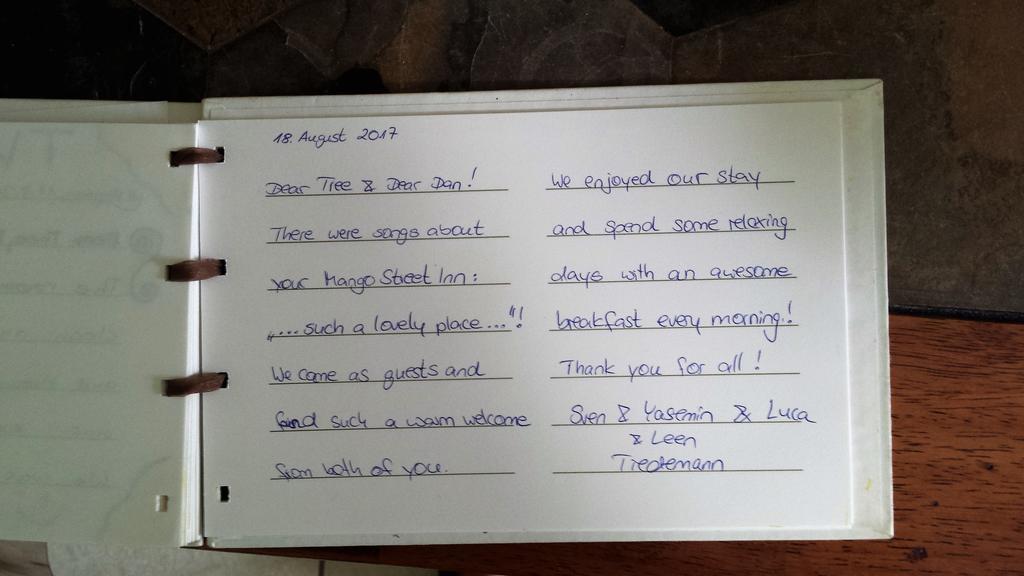 18. August 2017
Dear Tree & Dear Dan!
There were songs about
your Mango Street Inn:
„... such a lovely place..."!
We came as guests and
find such a warm welcome
from both of you.
We enjoyed our stay
and spend some relaxing
days with an awesome
breakfast every morning!
Thank you for all!
Sven & Yasemin & Luca
& Leen
Tiedemann